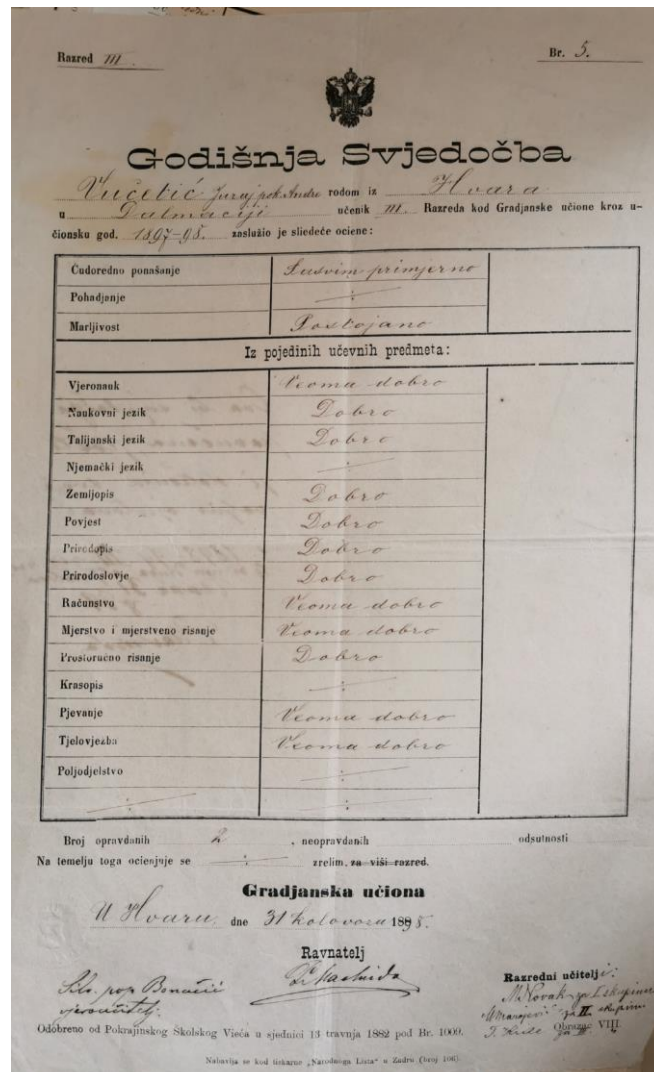 Razred III.
Br. 5.
Godišnja Svjedočba
Vučetić Juraj pok. Andre rodom iz Hvara
u Dalmaciji učenik III. Razreda kod Gradjanske učione kroz u-
čionsku god. 1897-98. zaslužio je sliedeće ociene:
Ćudoredno ponašanje Susvim primjerno
Pohadjanje ÷
Marljivost Postojano
Iz pojedinih učevnih predmeta:
Vjeronauk Veoma dobro
Naukovni jezik Dobro
Talijanski jezik Dobro
Njemački jezik ÷
Zemljopis Dobro
Povjest Dobro
Priredopis Dobro
Prirodoslovje Dobro
Računstvo Veoma dobro
Mjerstvo i mjerstveno risanje Veoma dobro
Prostoručno risanje Dobro
Krasopis ÷
Pjevanje Veoma dobro
Tjelovježba Veoma dobro
Poljodjelstvo ÷
÷ ÷
Broj opravdanih 2, neopravdanih odsutnosti
Na temelju toga ocienjuje se ÷ zrelim, za viši razred.
Gradjanska učiona
U Hvaru, dne 31 kolovoza 1898.
Ravnatelj
Razredni učitelji:
pop Bonačić
vjeroučitelj
M. Novak za I skupinu
za II. skupinu
za III.
Odobreno od Pokrajinskog Školskog Vieća u sjednici 13 travnja 1882 pod Br. 1009.
Obrazac VIII.
Nabavlja se kod tiskarne „Narodnoga Lista“ u Zadru (broj 106).